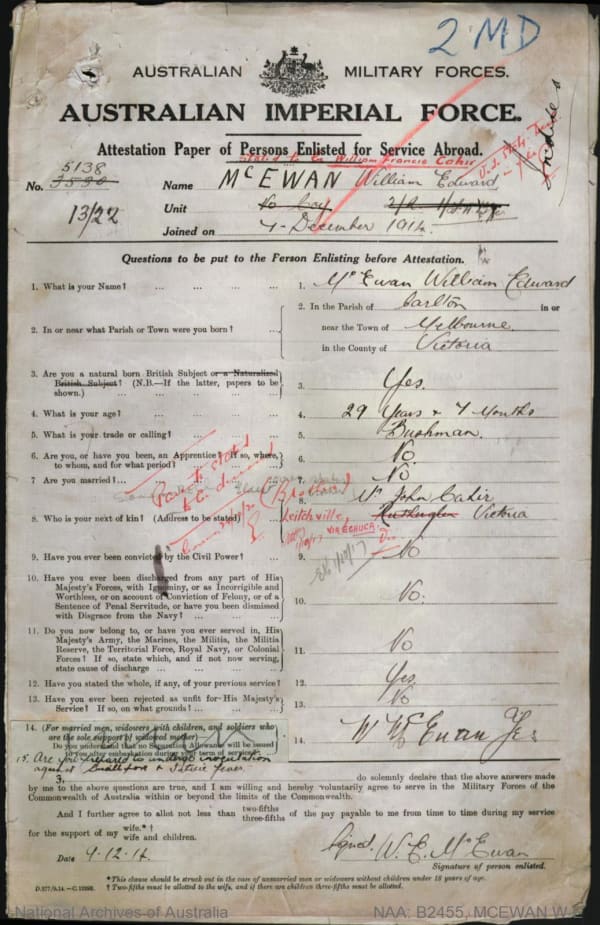 2 MD
AUSTRALIAN MILITARY FORCES.
AUSTRALIAN IMPERIAL FORCE.
Attestation Paper of Persons Enlisted for Service Abroad.
Stated to be William Francis Cahir
5138
No. 3530 Name McEWAN William Edward
13/22 Unit
Joined on 7 December 1914.
Questions to be put to the Person Enlisting before Attestation.
1. What is your Name? ... ... ... ... 1. McEwan William Edward
2. In or near what Parish or Town were you born? ...
2. In the Parish of Carlton in or
near the Town of Melbourne
in the County of Victoria
3. Are you a natural born British Subject or a Naturalized
British Subject? (N.B.—If the latter, papers to be
shown.) ... ... ... ... 3. Yes.
4. What is your age? ... ... ... ... 4. 29 Years & 7 Months
5. What is your trade or calling? ... ... ... 5. Bushman.
6. Are you, or have you been, an Apprentice? If so, where,
to whom, and for what period? ... ... 6. No
7. Are you married? ... ... ... ... 7. No
Parents stated
to be dead
(Brother)
8. Mr John Cahir
8. Who is your next of kin? (Address to be stated) Leitchville, Rutherglen Victoria
VIA ECHUCA.
9. Have you ever been convicted by the Civil Power? ... 9. No
10. Have you ever been discharged from any part of His
Majesty's Forces, with Ignominy, or as Incorrigible and
Worthless, or on account of Conviction of Felony, or of a
Sentence of Penal Servitude, or have you been dismissed
with Disgrace from the Navy? ... ... ... 10. No.
11. Do you now belong to, or have you ever served in, His
Majesty's Army, the Marines, the Militia, the Militia
Reserve, the Territorial Force, Royal Navy, or Colonial
Forces? If so, state which, and if not now serving,
state cause of discharge ... ... ... 11. No
12. Have you stated the whole, if any, of your previous service? 12. Yes
13. Have you ever been rejected as unfit for His Majesty's
Service? If so, on what grounds? ... ... 13. No
14. (For married men, widowers with children, and soldiers who
are the sole support of widowed mother)—
Do you understand that no Separation Allowance will be issued
to you after embarkation during your term of service? 14. W McEwan Yes
15. Are you prepared to undergo inoculation
against Smallpox & Enteric fever.
I, do solemnly declare that the above answers made
by me to the above questions are true, and I am willing and hereby voluntarily agree to serve in the Military Forces of the
Commonwealth of Australia within or beyond the limits of the Commonwealth.
And I further agree to allot not less than two-fifths
three-fifths of the pay payable to me from time to time during my service
for the support of my wife.*†
wife and children.
Signed. W. E. McEwan
Date 9.12.14. Signature of person enlisted.
*This clause should be struck out in the case of unmarried men or widowers without children under 18 years of age.
D.277/9.14.—C.12290. † Two-fifths must be allotted to the wife, and if there are children three-fifths must be allotted.
National Archives of Australia NAA: B2455, MCEWAN W E